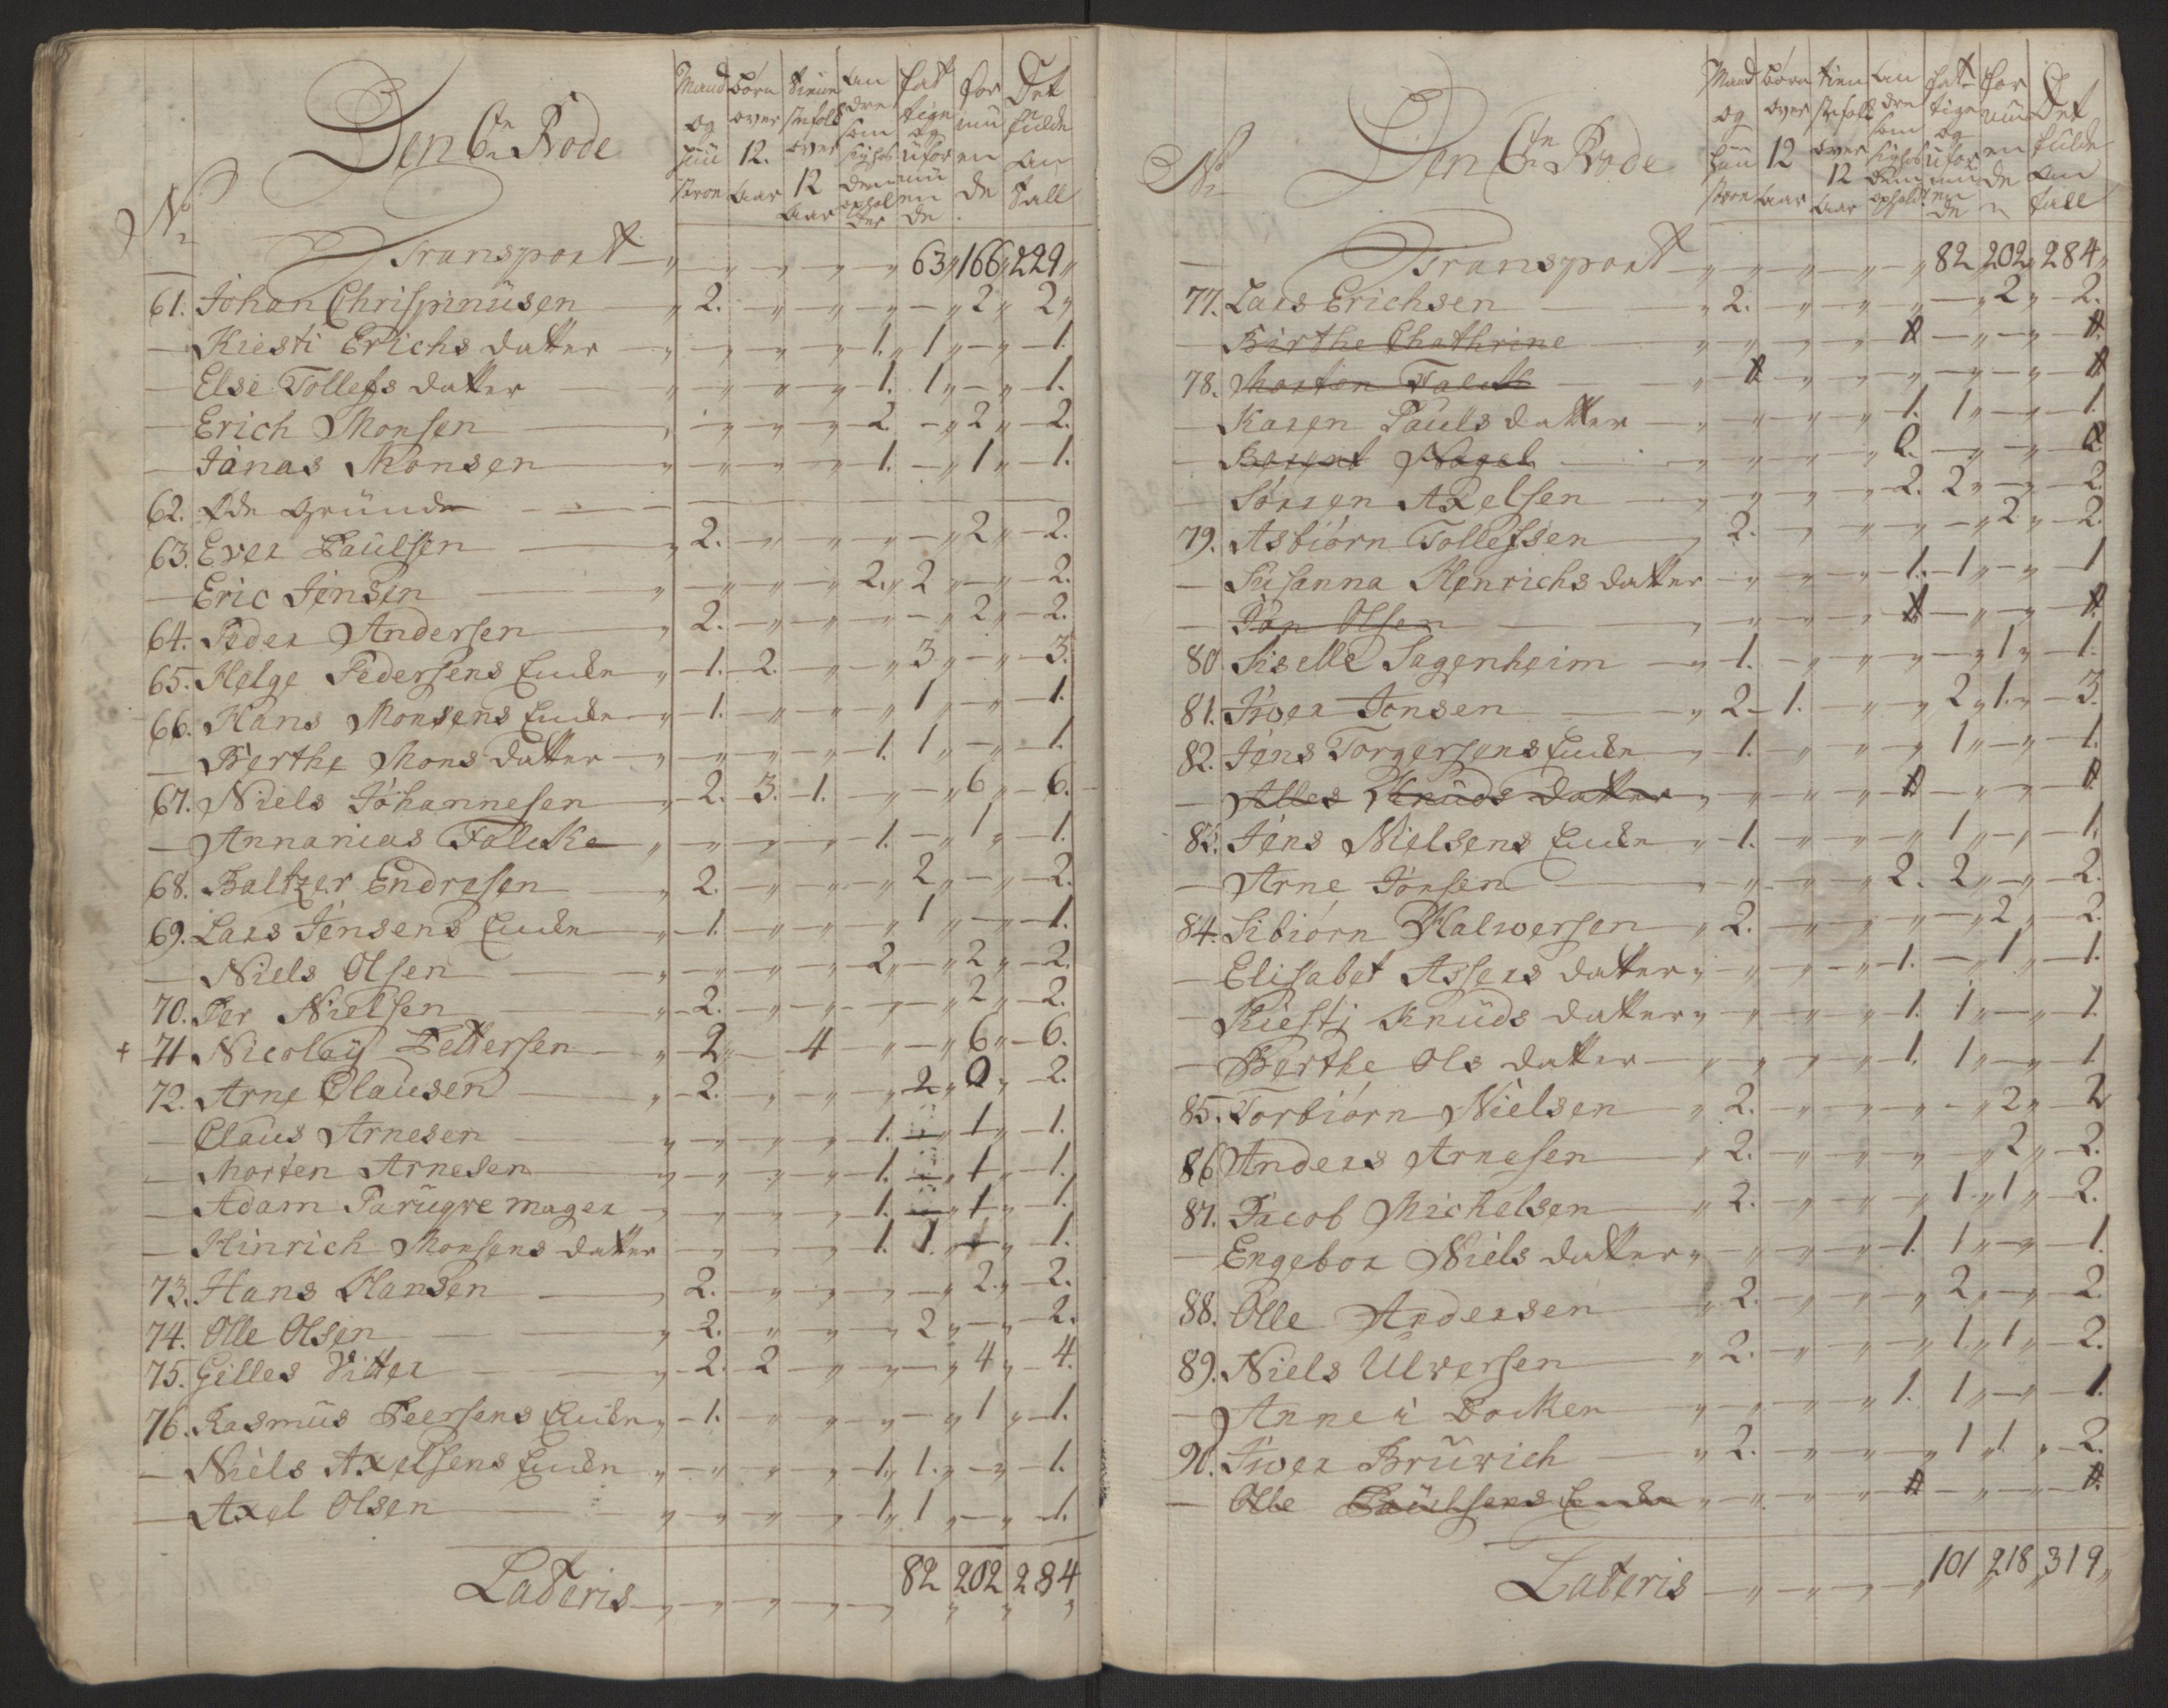 Den 6te Rode
No
Mand og Hustroe
Børn over 12. Aar
Tieniistefolk over 12 Aar
Andre som sig hos dem opholder
Fattige og uformuende
Formuende
Det fulde Antall
Transport 63 166 229
61. Johan Chrispinusen 2. 2 2
Kiesti Erichs datter 1. 1 1.
Else Tollefs datter 1. 1 1.
Erich Monsen 2 2 2.
Jonas Monsen 1. 1 1.
62. Øde Grund
63. Ever Paulsen 2. 2 2.
Eric Jensen 2. 2 2.
64. Peder Andersen 2. 2 2.
65. Helge Pedersens Encke 1. 2. 3 3.
66. Hans Monsens Encke 1. 1 1.
Berthe Mons datter 1. 1 1.
67. Niels Johannesen 2. 3. 1. 6 6.
Annanias Falcke 1. 1 1.
68. Baltzer Endresen 2. 2 2.
69. Lars Jensens Encke 1. 1 1.
Niels Olsen 2 2 2.
70. Per Nielsen 2. 2 2.
+ 71 Nicolay Pettersen 2 4 6 6.
72. Arne Clausen 2. 2 0 2.
Claus Arnesen 1. 1 1.
Morten Arnesen 1. 1 1.
Adam Parugvemager 1. 1 1.
Hinrich Monsens datter 1. 1. 1 1.
73. Hans Hansen 2. 2. 2.
74. Olle Olsen 2. 2 2.
75. Gilles Vitter 2. 2 4 4.
76. Rasmus Peersens Encke 1. 1 1.
Niels Axelsens Encke 1. 1. 1.
Axel Olsen 1. 1 1.
Lateris 82 202 284
Den 6te Rode
No
Mand og Hustroe
Børn over 12 Aar
Tienistefolk over 12 Aar
Andre som sig hos dem opholder
Fattige og uformuende
Formuende
Det fulde Antall
Transport 82 202 284
77. Lars Erichsen 2. 2 2.
Birthe Chathrine 1 1.
78. Morten Falck 1 1
Karen Pauls datter 1. 1 1
Berent Nagel
Sören Axelsen 2. 2 2.
79. Asbiörn Tollefsen 2. 2 2.
Susanna Henrichs datter 1. 1 1
Jon Olsen 1 1.
80. Siselle Sagenheim 1. 1 1.
81. Iwer Jonsen 2 1. 2 1. 3.
82. Jens Torgersens Encke 1. 1 1.
Alles Knuds datter 1 1
83. Jens Nielsens Encke 1. 1 1.
Arne Jonsen 2. 2 2.
84. Sibiörn Halwersen 2. 2 2.
Elisabet Assers datter 1. 1 1.
Kiesti Knuds datter 1. 1 1.
Berthe Ols datter 1. 1 1
85. Torbiörn Nielsen 2. 2 2
86 Anders Arnesen 2. 2 2.
87. Jacob Michelsen 2. 1 1 2.
Engebor Niels datter 1. 1 1.
88. Olle Andersen 2. 2 2.
89. Niels Ulversen 2. 1. 1 2.
Anne i Docken 1. 1 1.
90. Iwer Brüwich 2. 1 1 2.
Olle Paulsens Encke 1 1.
Lateris 101 218 319